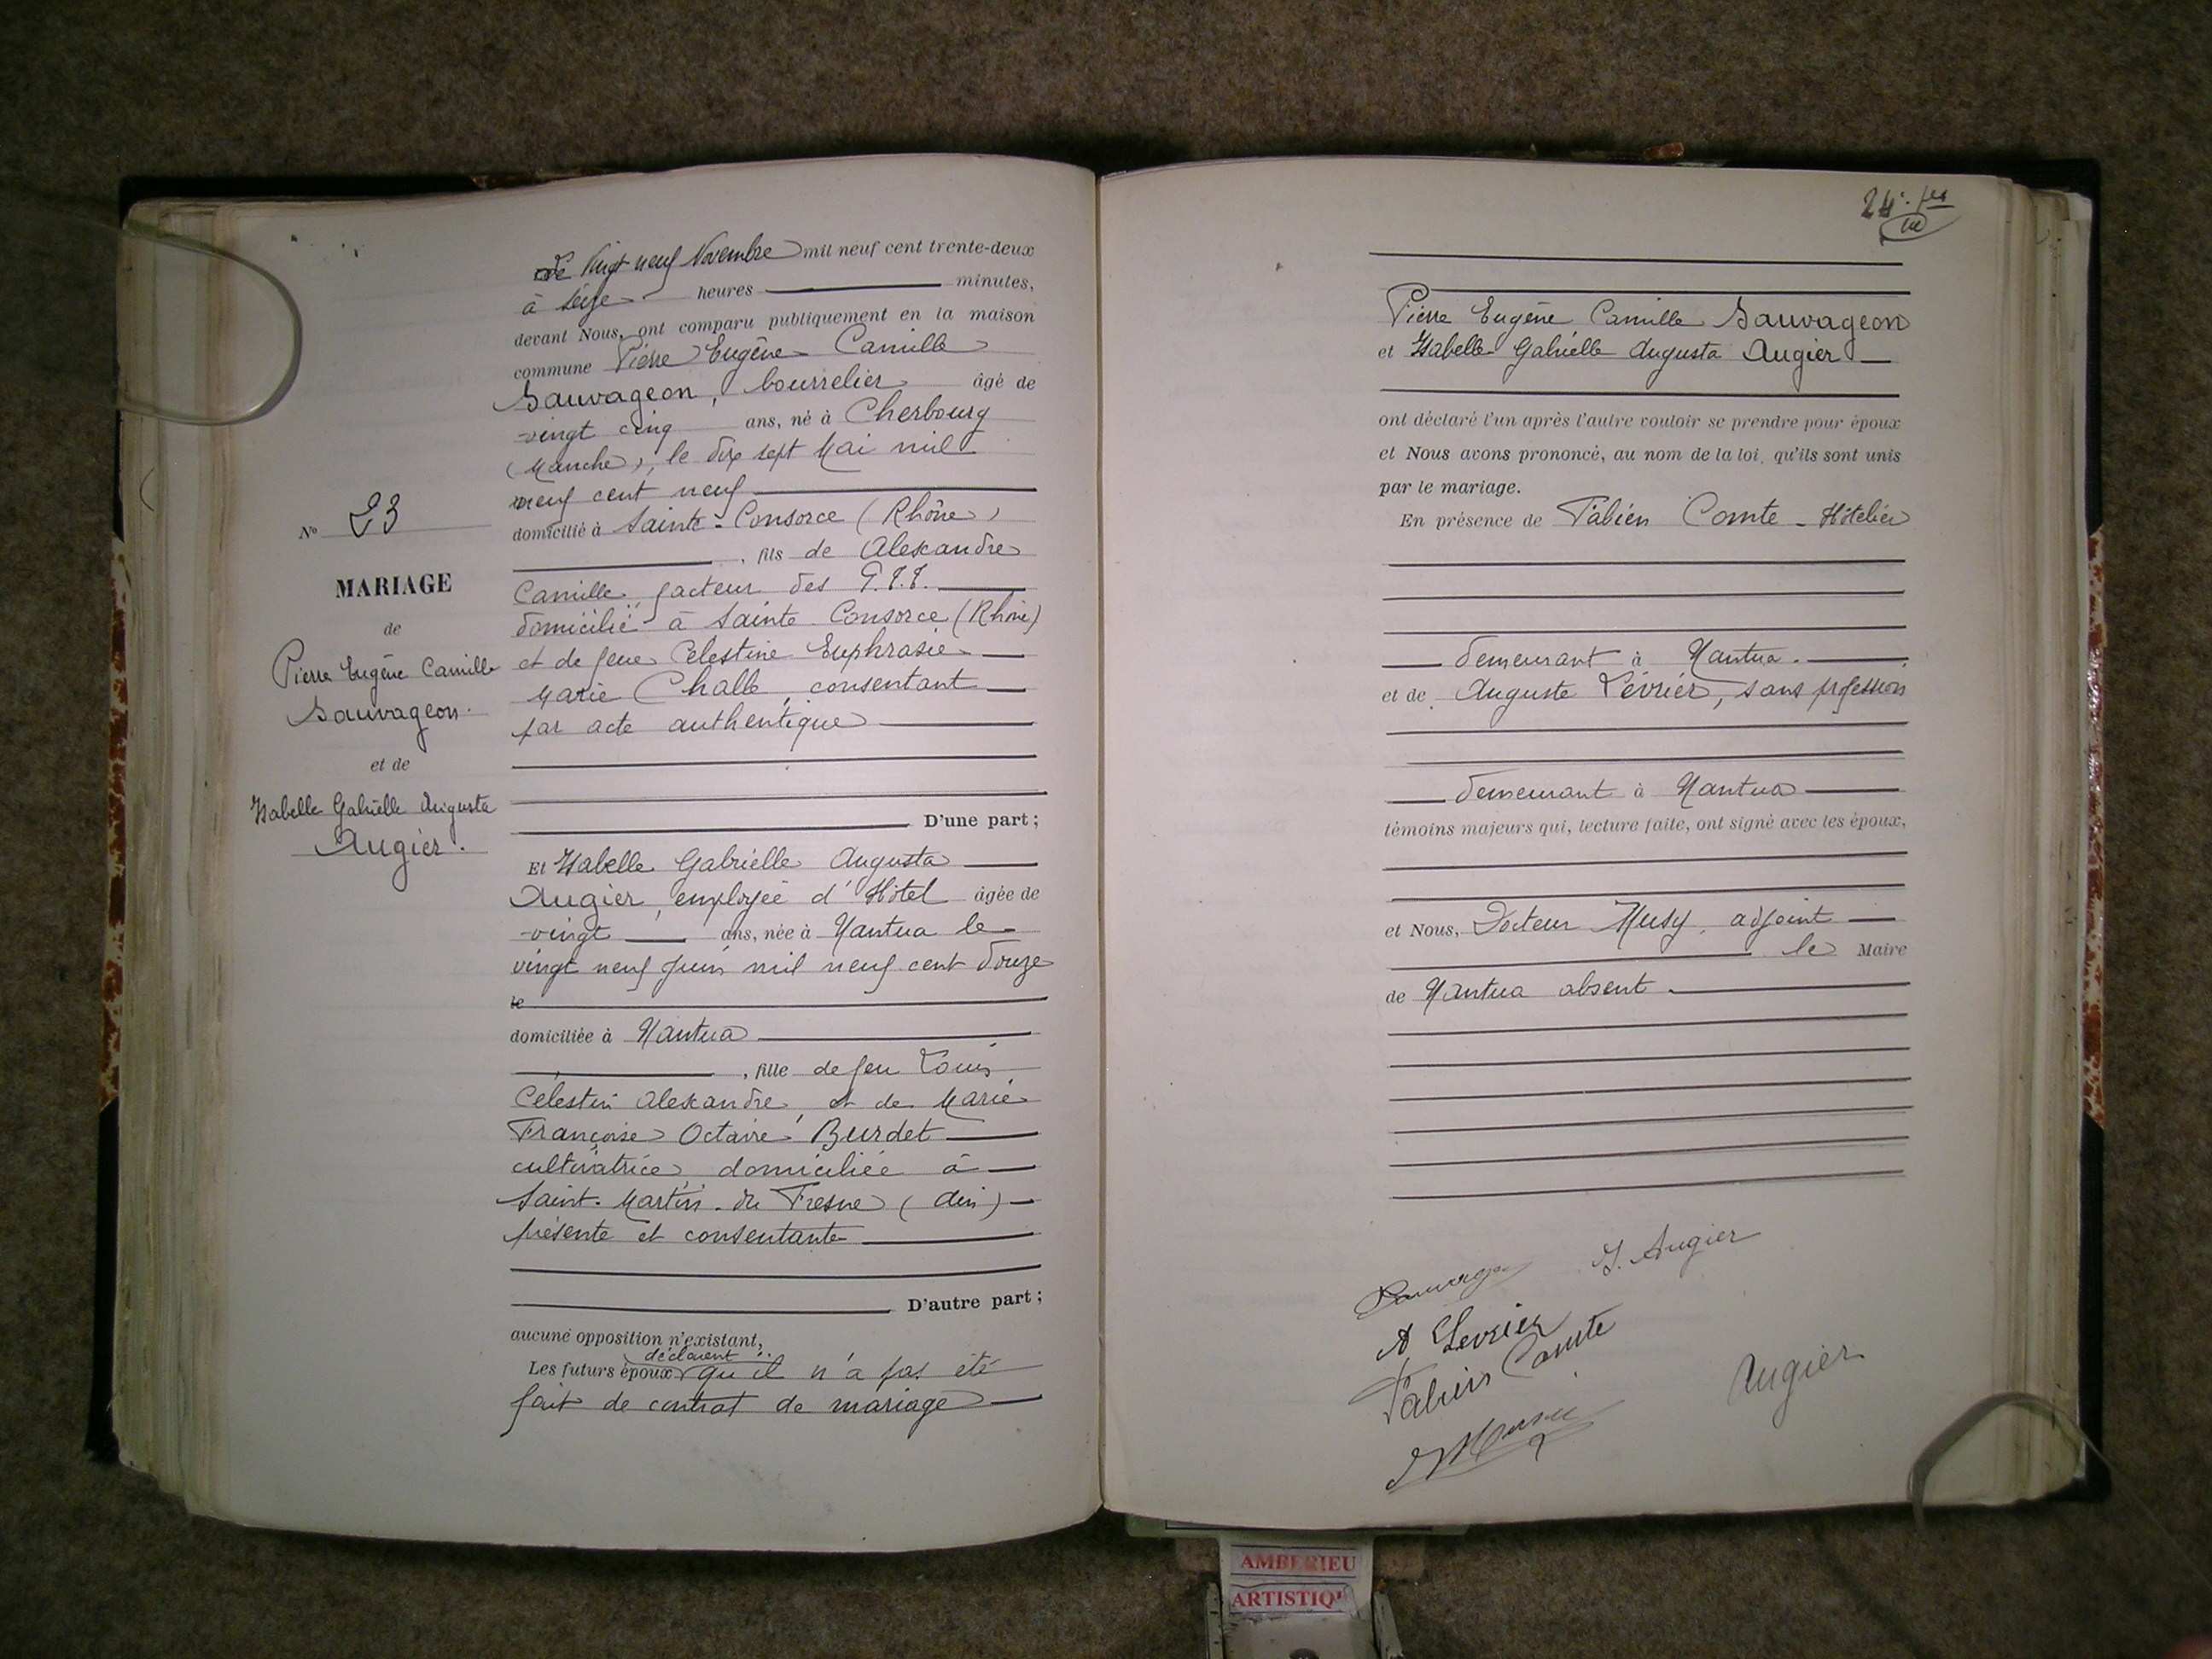 Le vingt neuf Novembre mil neuf cent trente-deux
à seize heures minutes,
devant Nous, ont comparu publiquement en la maison
commune Pierre Eugène Camille
Sauvageon, bourrelier âgé de
vingt cinq ans, né à Cherbourg
(Manche), le dix sept Mai mil
neuf cent neuf
domicilié à Sainte-Consorce (Rhône)
, fils de Alexandre
Camille, facteur des P.T.T.
domicilié à Sainte Consorce (Rhône)
et de feue Célestine Euphrasie
Marie Challe, consentant
par acte authentique
D'une part;
Et Isabelle Gabrielle Augusta
Augier, employée d'Hôtel âgée de
vingt ans, née à Nantua le
vingt neuf Juin mil neuf cent douze
le
domiciliée à Nantua
, fille de feu Louis
Célestin Alexandre, et de Marie
Françoise Octavie Burdet
cultivatrice, domiciliée à
Saint-Martin-du Fresne (Ain)
présente et consentante
D'autre part;
aucune opposition n'existant,
déclarent
Les futurs époux qu'il n'a pas été
fait de contrat de mariage
N° 23
MARIAGE
de
Pierre Eugène Camille
Sauvageon.
et de
Isabelle Gabrielle Augusta
Augier.
24
Pierre Eugène Camille Sauvageon
et Isabelle Gabrielle Augusta Augier
ont déclaré l'un après l'autre vouloir se prendre pour époux
et Nous avons prononcé, au nom de la loi, qu'ils sont unis
par le mariage.
En présence de Fabien Comte - Hôtelier
demeurant à Nantua.
et de Auguste Lévrier, sans profession
demeurant à Nantua
témoins majeurs qui, lecture faite, ont signé avec les époux,
et Nous, Docteur Musy, adjoint
le Maire
de Nantua absent.
Sauvageon
I. Augier
A Levrier
Fabien Comte
Augier
Musy
AMBERIEU
ARTISTIQ